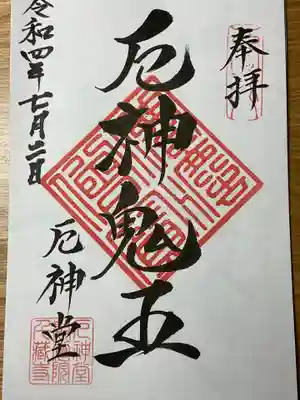 奉拝
厄神鬼王
厄神堂
令和四年七月二日